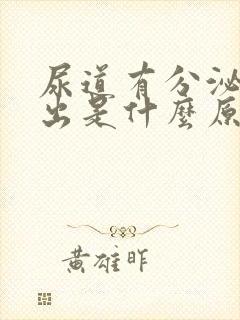 尿道有分泌
出是什麼原
黃雄昨